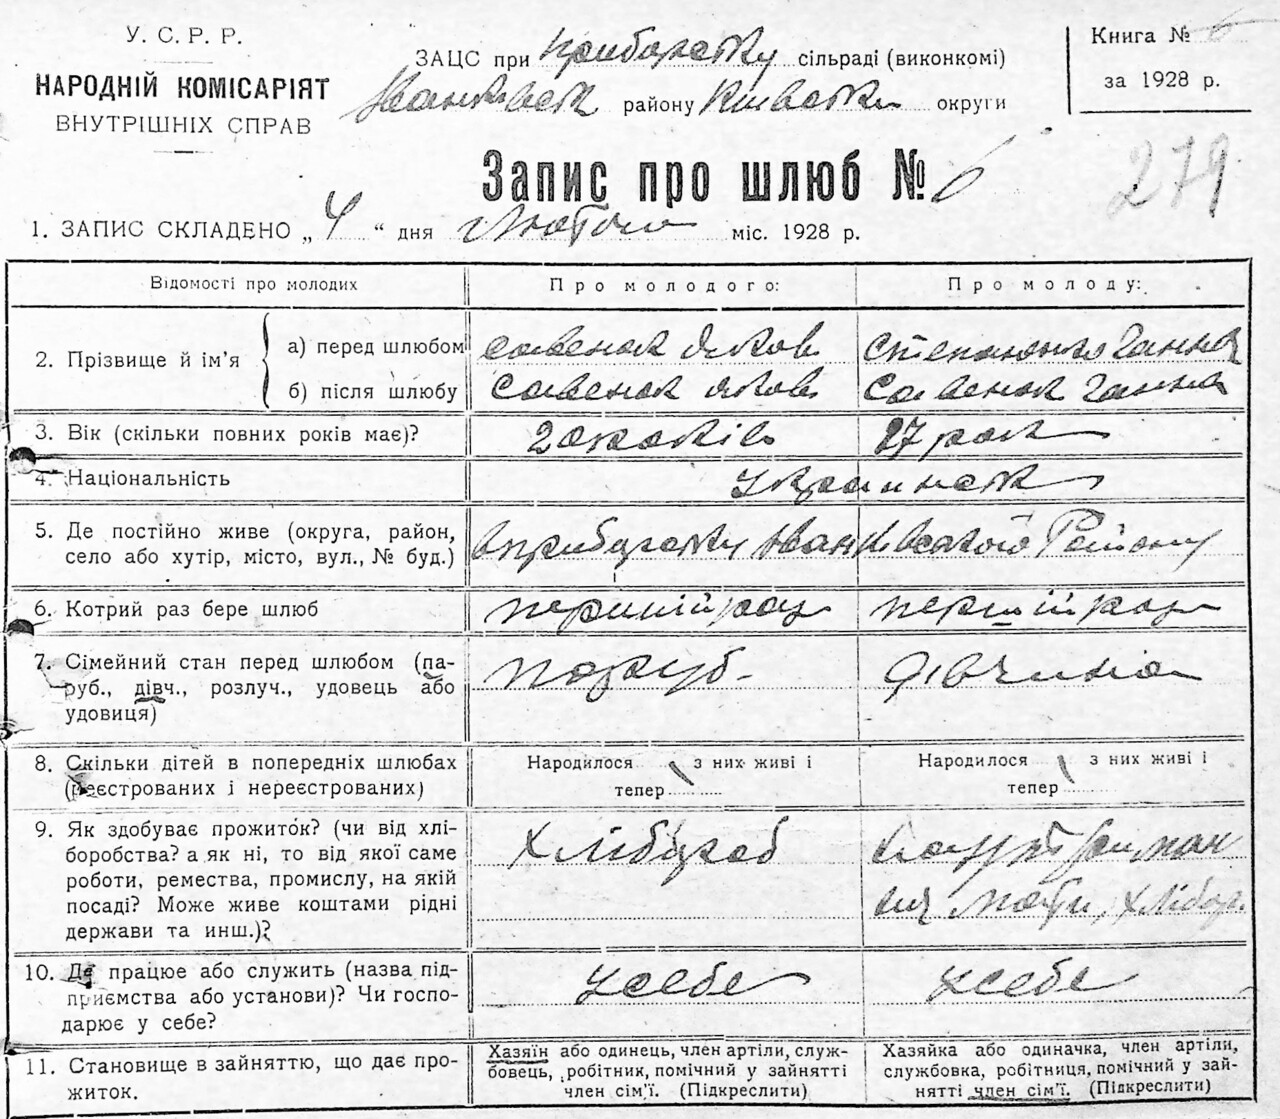 У. С. Р. Р.
НАРОДНІЙ КОМІСАРІЯТ
ВНУТРІШНІХ СПРАВ
ЗАЦС при сільраді (виконкомі)
району округи
Книга №
за 1928 р.
279
Запис про шлюб № 6
1. ЗАПИС СКЛАДЕНО „ 4 “ дня Лютого міс. 1928 р.
Відомості про молодих
Про молодого:
Про молоду:
2. Прізвище й ім'я
а) перед шлюбом
Савенок Яков
Степаненко Ганна
б) після шлюбу
Савенок Яков
Савенок Ганна
3. Вік (скільки повних років має)?
років
27 рок
4. Національність
5. Де постійно живе (округа, район,
село або хутір, місто, вул., № буд.)
Району
6. Котрий раз бере шлюб
перший раз
перший раз
7. Сімейний стан перед шлюбом (па-
руб., дівч., розлуч., удовець або
удовиця)
паруб.
дівчина
8. Скільки дітей в попередніх шлюбах
(реєстрованих і нереєстрованих)
Народилося з них живі і
тепер
Народилося з них живі і
тепер
9. Як здобуває прожиток? (чи від хлі-
боробства? а як ні, то від якої саме
роботи, ремества, промислу, на якій
посаді? Може живе коштами рідні
держави та инш.)?
Хлібороб
мати,
10. Де працює або служить (назва під-
приємства або установи)? Чи госпо-
дарює у себе?
у себе
у себе
11. Становище в зайняттю, що дає про-
житок.
Хазяїн або одинець, член артіли, служ-
бовець, робітник, помічний у зайнятті
член сім'ї. (Підкреслити)
Хазяйка або одиначка, член артіли,
службовка, робітниця, помічний у зай-
нятті член сім'ї. (Підкреслити)